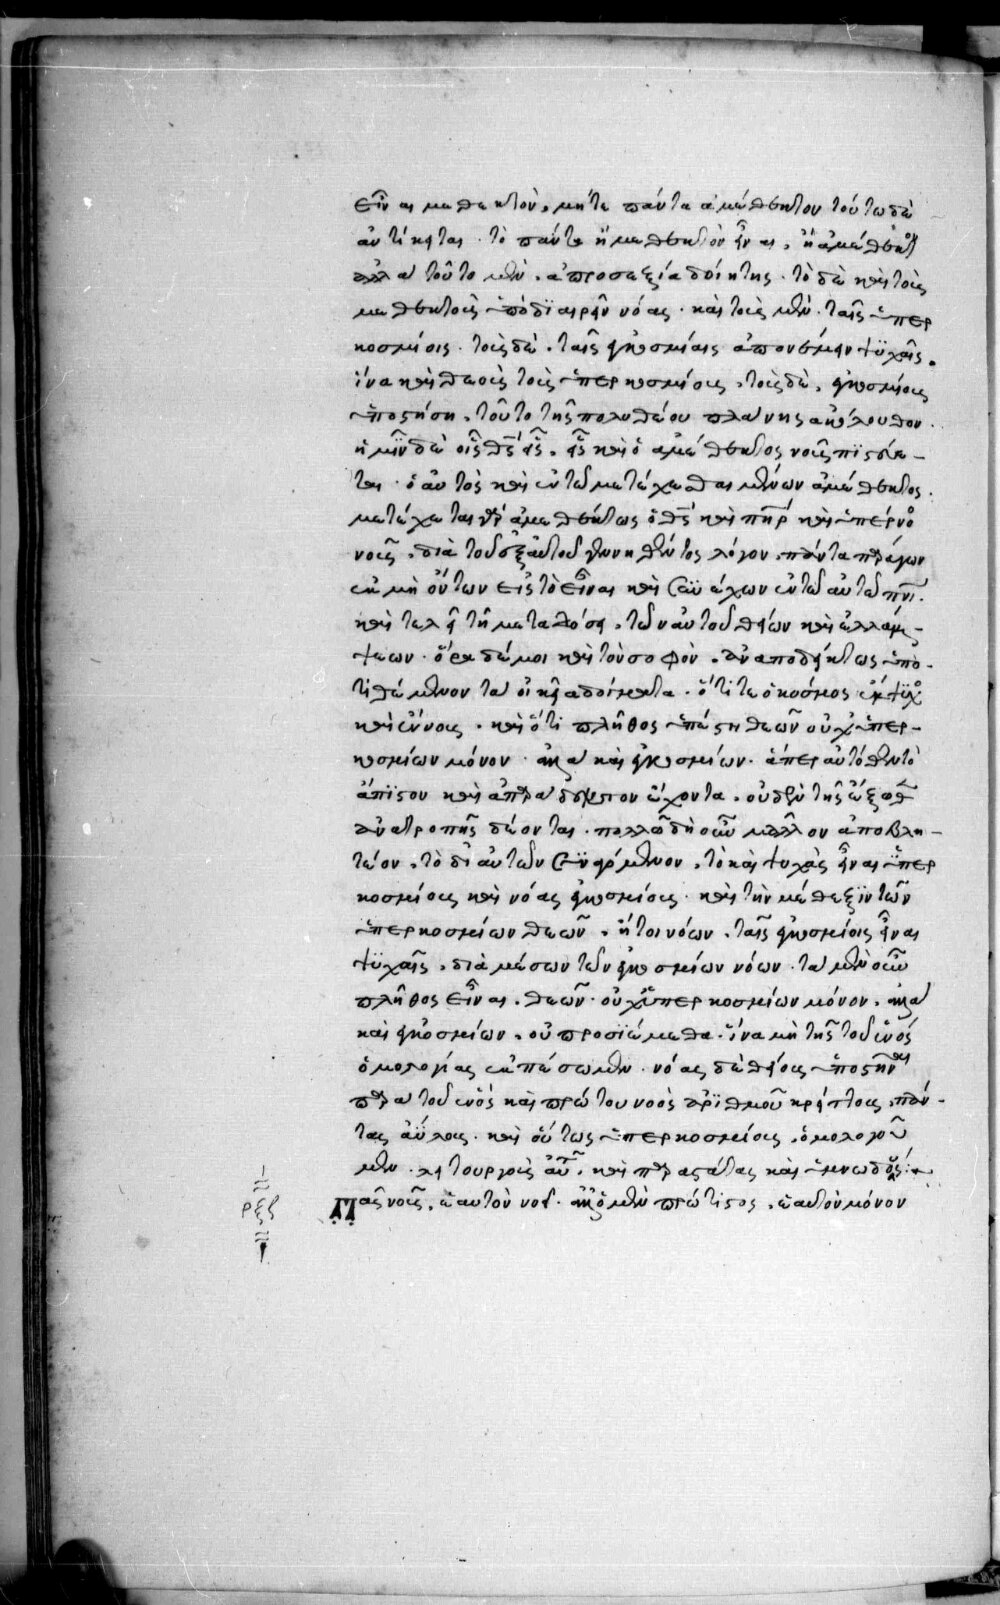 εἶναι μεθεκτὸν, μήτε πάντα ἀμέθεκτον τούτω δὲ
ἀντίκειται· τὸ πάντα ἢ μεθεκτὸν εἶναι, ἢ ἀμέθεκτον
ἀλλὰ τοῦτο μὲν, ἀπροσεξία δοίη τις· τὸ δὲ καὶ τοὺς
μεθεκτοὺς ὑποδιαιρεῖν νόας· καὶ τοὺς μὲν, ταῖς ὑπερ
κοσμίοις· τοὺς δὲ, ταῖς ἐγκοσμίαις ἀπονέμειν ψυχαῖς,
ἵνα καὶ θεοὺς τοὺς ὑπερκοσμίους, τοὺς δὲ, ἐγκοσμίους
ὑποστήση, τοῦτο τῆς πολυθέου πλάνης ἀκόλουθον·
ἡμῖν δὲ οἷς θς εἷς, εἷς καὶ ὁ ἀμέθεκτος νοῦς πιστεύε-
ται· ὁ αὐτὸς καὶ ἐν τῷ μετέχεσθαι μένων ἀμέθεκτος·
μετέχεται γὰρ ἀμεθέκτως ὁ θς καὶ πηρ καὶ ὑπέρνο
νοῦς, διὰ τοῦ ἐξ αὐτοῦ γεννηθέντος λόγου, πάντα παράγων
ἐκ μὴ ὄντων εἰς τὸ εἶναι καὶ συνέχων ἐν τῷ αὐτῷ πνι·
καὶ τελεῖ τῇ μεταδόσει, τῶν αὐτοῦ θείων καὶ ἐλλάμ-
ψεων· ὅρα δέ μοι καὶ τὸν σοφὸν, ἀναποδείκτως ὑπο-
τιθέμενον τὰ οἰκεῖα δόγματα· ὅτι τε ὁ κόσμος ἔμψυχο
καὶ ἔννους, καὶ ὅτι πλῆθος ὑπέστη θεῶν οὐχ ὑπερ-
κοσμίων μόνον· ἀλλὰ καὶ ἐγκοσμίων· ἅπερ αὐτόθεν τὸ
ἄπιστον καὶ ἀπαράδεκτον ἔχοντα, οὐδὲν τῆς ἔξωθεν
ἀνατροπῆς δέονται· πολλῷ δὴ οὖν μᾶλλον ἀποβλη-
τέον, τὸ δι' αὐτῶν συναγόμενον, τὸ καὶ ψυχὰς εἶναι ὑπερ
κοσμίους καὶ νόας ἐγκοσμίους· καὶ τὴν μέθεξιν τῶν
ὑπερκοσμίων θεῶν, ἤτοι νόων, ταῖς ἐγκοσμίοις εἶναι
ψυχαῖς, διὰ μέσων τῶν ἐγκοσμίων νόων· τὸ μὲν οὖν
πλῆθος εἶναι, θεῶν· οὐχ ὑπερκοσμίων μόνον, ἀλλὰ
καὶ ἐγκοσμίων, οὐ προσιέμεθα· ἵνα μὴ τῆς τοῦ ἑνὸς
ὁμολογίας ἐκπέσωμεν· νόας δὲ θείους ὑποστῆναι
παρὰ τοῦ ἑνὸς καὶ πρώτου νοὸς ἀριθμοῦ κρείττους, πάν-
τας ἀΰλους· καὶ ὄντως ὑπερκοσμίους, ὁμολογοῦ
μεν· λειτουργοὺς αὐτοῦ, καὶ παραστάτας καὶ ὑμνωδούς:
Πᾶς νοῦς, ἑαυτὸν νοεῖ· ἀλλ' ὁ μὲν πρώτιστος, ἑαυτὸν μόνον
ρξζ